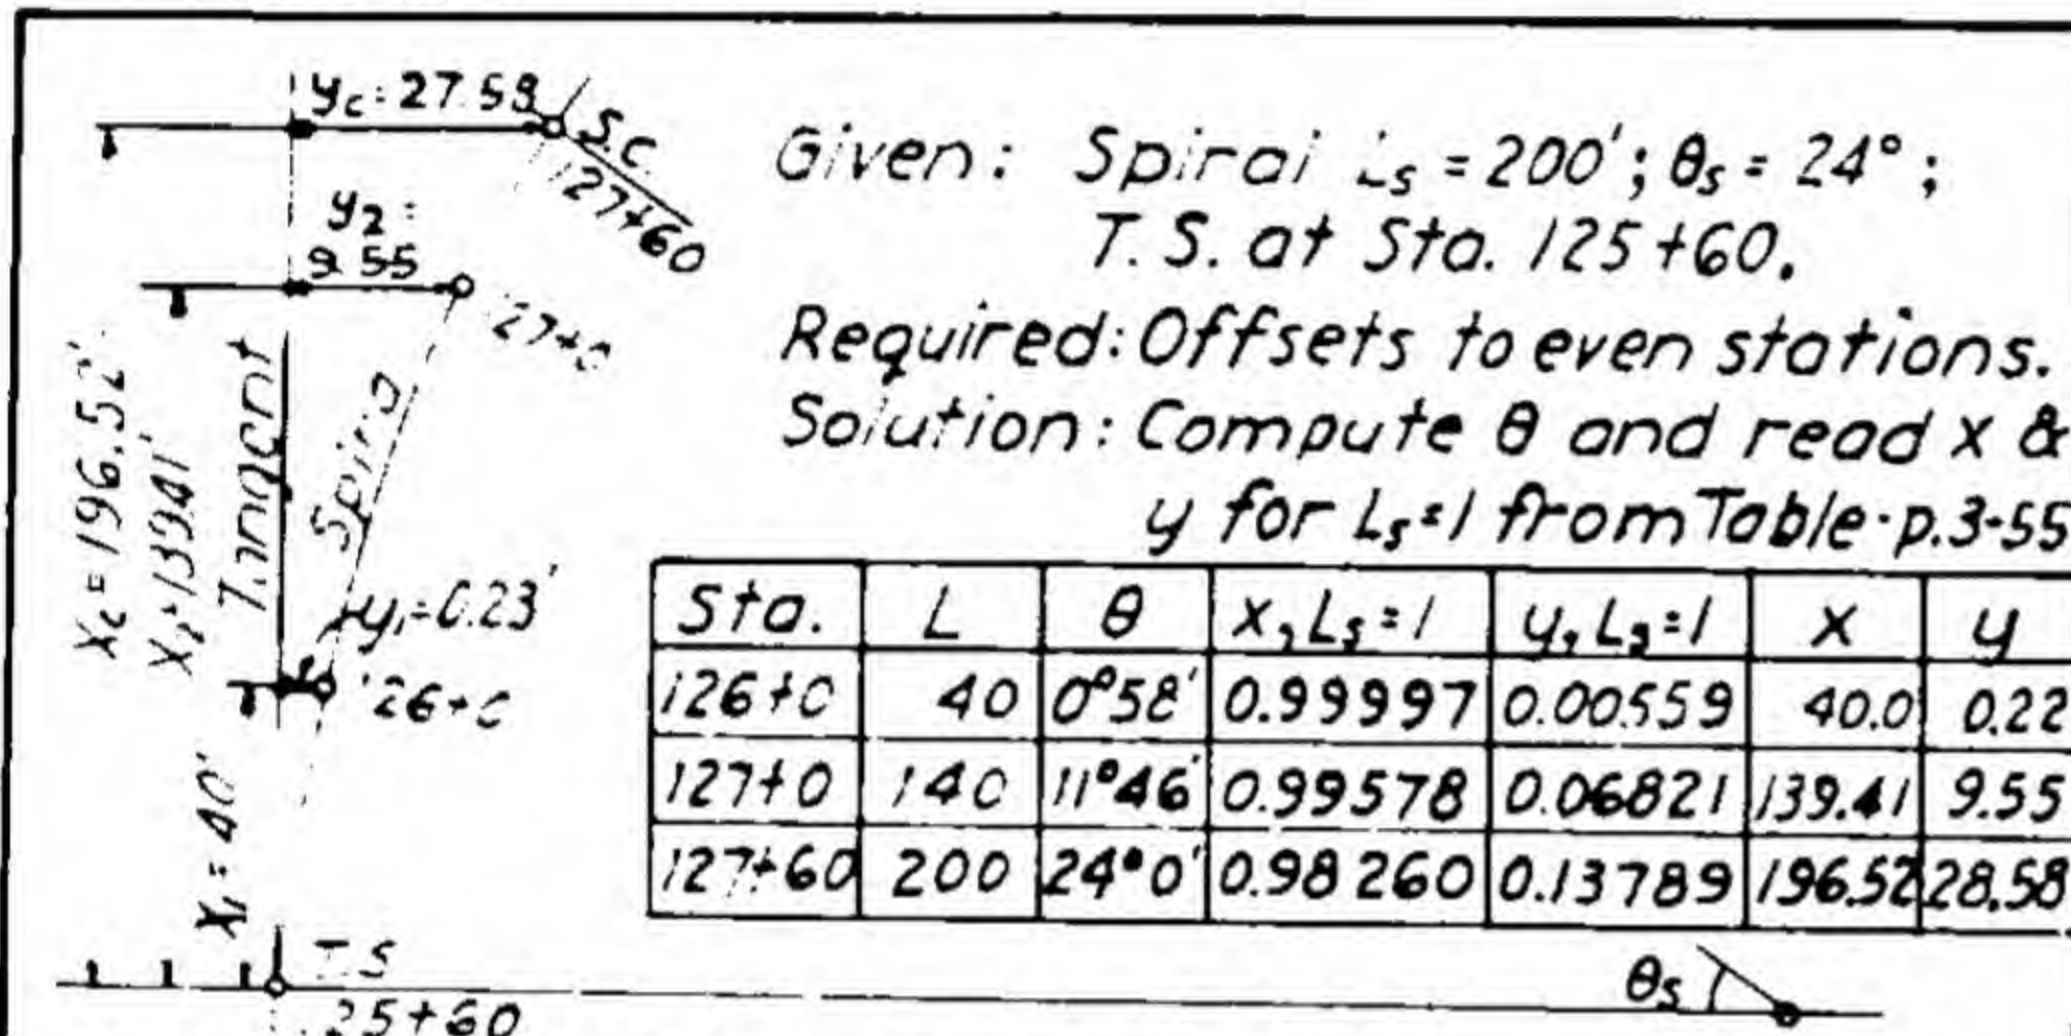 yc = 27.58
S.C.
127+60
y2 =
9.55
27+0
Xc = 196.52'
X2 = 139.41'
Tangent
Spira
y1=0.23'
26+0
X1 = 40'
T.S
25+60
Given: Spiral Ls = 200'; θs = 24°;
T. S. at Sta. 125+60.
Required: Offsets to even stations.
Solution: Compute θ and read x &
y for Ls=1 from Table - p.3-55
Sta. L θ x, Ls=1 y, Ls=1 x y
126+0 40 0°58' 0.99997 0.00559 40.0 0.22
127+0 140 11°46' 0.99578 0.06821 139.41 9.55
127+60 200 24°0' 0.98260 0.13789 196.52 28.58
θs